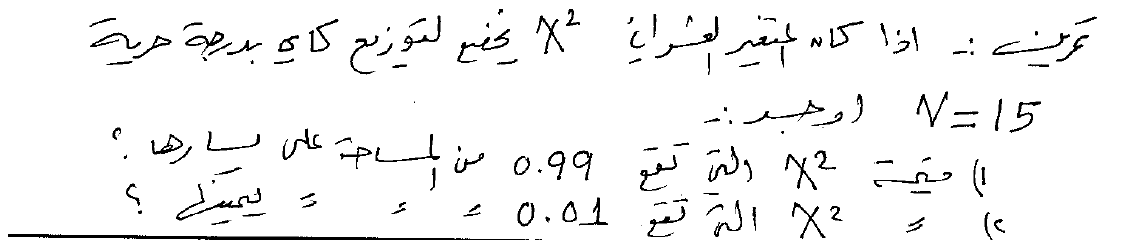 تمرين :- اذا كان المتغير العشوائي X² يخضع لتوزيع كاي بدرجة حرية
V=15 اوجد :-
1) قيمة X² التي تقع 0.99 من المساحة على يسارها ؟
2) = X² التي تقع 0.01 = = = يمينها ؟